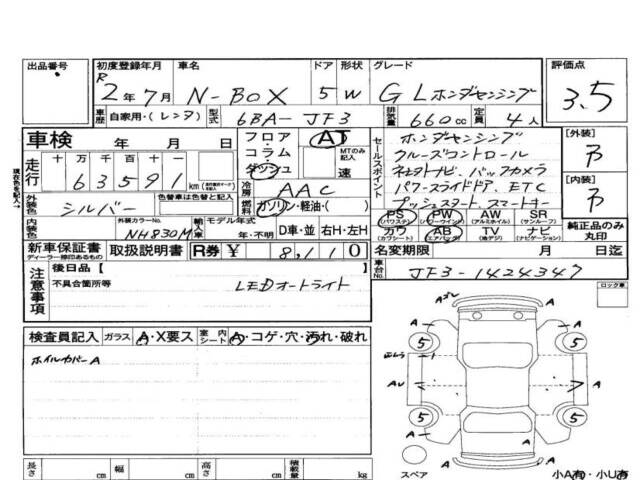 出品番号 初度登録年月 車名 ドア 形状 グレード 評価点
R 2年 7月 N-BOX 5 W GLホンダセンシング 3.5
車歴 自家用・(レンタ) 型式 6BA-JF3 排気量 660cc 定員 4人
車検 年 月 日
フロア・コラム・ダッシュ AT MTのみ記入 速
セールスポイント
ホンダセンシング
クルーズコントロール
ナビ・バックカメラ
パワースライドドア、ETC
プッシュスタート、スマートキー
[外装]
[内装]
現在色を記入→
走行 十 万 千 百 十 一
63591 km
冷房 AAC
燃料 ガソリン・軽油・( )
外装色 シルバー 色替車は色替と記入
内装色 外装カラーNo. NH830M 輸入車 モデル年式 年・不明 D車・並 右H・左H
PS (パワステ) PW (パワーウインドウ) AW (アルミホイル) SR (サンルーフ)
カワ (カワシート) AB (エアバッグ) TV (地デジ) ナビ (ナビゲーション)
純正品のみ丸印
新車保証書 ディーラー捺印あるもの 取扱説明書 R券 ¥ 8,110
名変期限 月 日迄
車台No. JF3-1424347
注意事項 後日品[ ]
不具合箇所等 LEDオートライト
ロック車
検査員記入 ガラス A・X要ス 室内シート A・コゲ・穴・汚れ・破れ
ホイルカバーA
A
5 5
A A
5 5
A A
A
スペア 小A有・小U有
長さ cm 幅 cm 高さ cm 積載量 kg